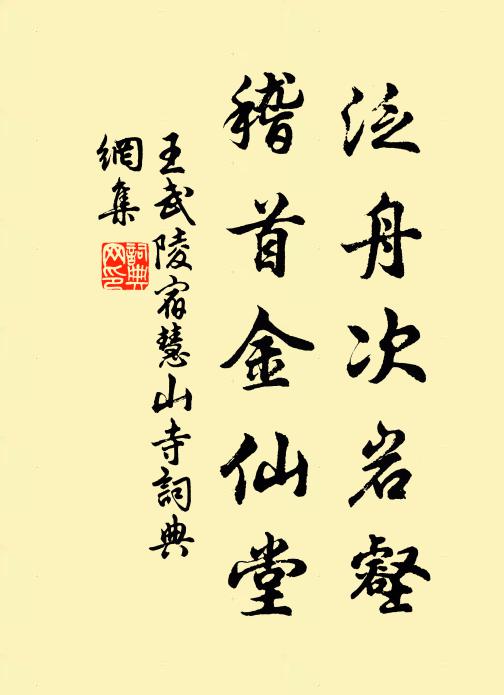 泛舟次岩壑
稽首金仙堂
王武陵宿慧山寺詞典
網集
詞典网印